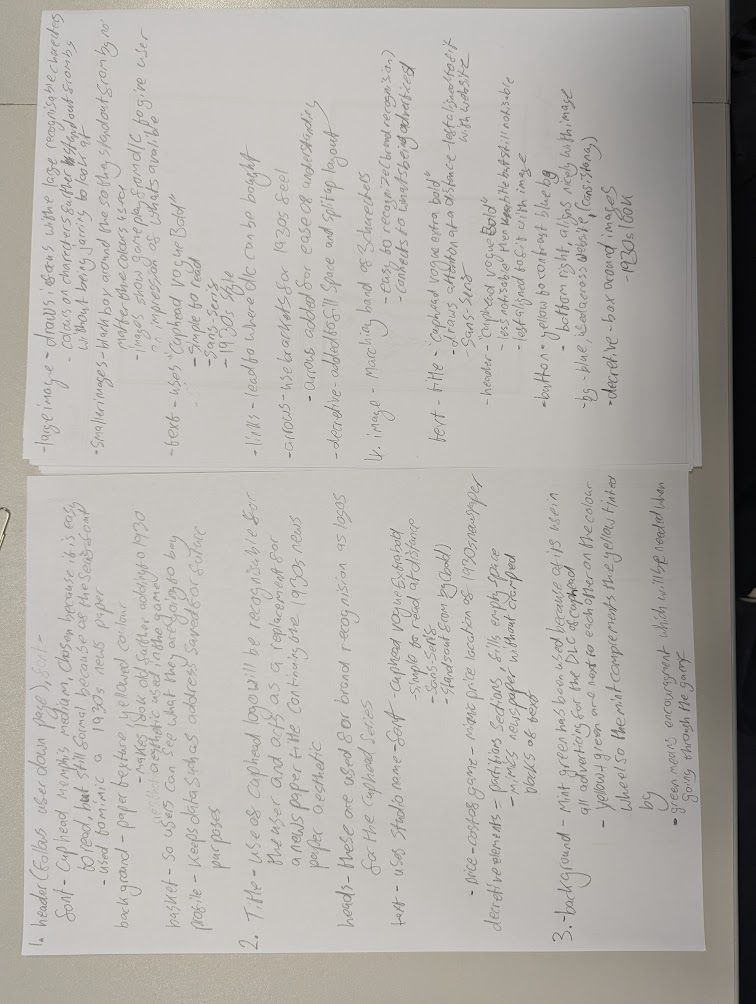 1. header (follows user down page), font -
font - Cuphead Memphis medium, chosen because it is easy
to read, but still formal because of the serif font
- used to mimic a 1930s news paper
background - paper texture yellowed colour
- makes look old further adding to a 1930
aesthetic used in the game
basket - so users can see what they are going to buy
profile - keeps data such as address saved for future
purposes
2. Title - use of cuphead logo will be recognisable for
the user and acts as a replacement for
a news paper title continuing the 1930s news
paper aesthetic
heads - these are used for brand recognision as logos
for the cuphead series
text - uses studio name - font - cuphead vogue extra bold
- simple to read at distance
- Sans serif
- stands out from bg (bold)
- price - cost of game - mimics price location of 1930s newspaper
decretive elements - partitions sections, fills empty space
- mimics newspaper without cramped
blocks of text
3. - background - mint green has been used because of its use in
all advertising for the DLC of cuphead
- yellow + green are next to each other on the colour
wheel so the mint complements the yellow tinted
bg
- green means encouragment which will be needed when
going through the game
- large image - draws in fans with large recognisable charecters
- colours on charecters further stand out from bg
without being jarring to look at
- Smaller images - black box around the so they stand out from bg no
matter the colours used
- images show gameplay from DLC to give user
an impression of whats avalible
- text - uses "Cuphead vogue Bold"
- simple to read
- sans-serif
- 1930s style
- links - lead to where DLC can be bought
- arrows - use brackets for 1930s feel
- arrows added for ease of understanding
- decretive - added to fill space and split up layout
4. image - Marching band of 3 charecters
- easy to recognize (brand recognision)
- connects to whats being advertised
text - title - "Cuphead vogue extra bold"
- draws attention at a distance - left aligned to fit
with website
- Sans-serif
- header - "cuphead vogue Bold"
- less notisable then title but still notisable
- left aligned to fit with image
- button - yellow to contrast blue bg
- bottom right, aligns nicely with image
- bg - blue, used across website, (consistancy)
- decretive - box around images
- 1930s look